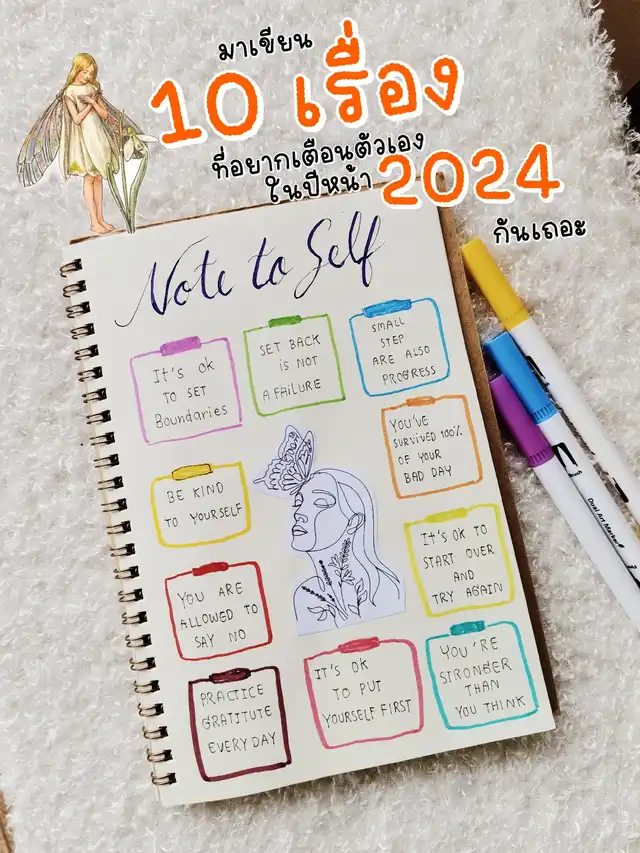 มาเขียน
10 เรื่อง
ที่อยากเตือนตัวเอง
ในปีหน้า 2024
กันเถอะ
Note to Self
It's ok
TO SET
Boundaries
SET BACK
iS NOT
A FAILURE
SMALL
STEP
ARE ALSO
PROGRESS
YOU'VE
SURVIVED 100%
OF YOUR
BAD DAY
BE KIND
TO YOURSELF
IT'S OK TO
START OVER
AND
TRY AGAIN
YOU ARE
ALLOWED TO
SAY NO
PRACTICE
GRATITUTE
EVERY DAY
IT'S OK
TO PUT
YOURSELF FIRST
YOU'RE
STRONGER
THAN
YOU THINK
Dual Art Marker